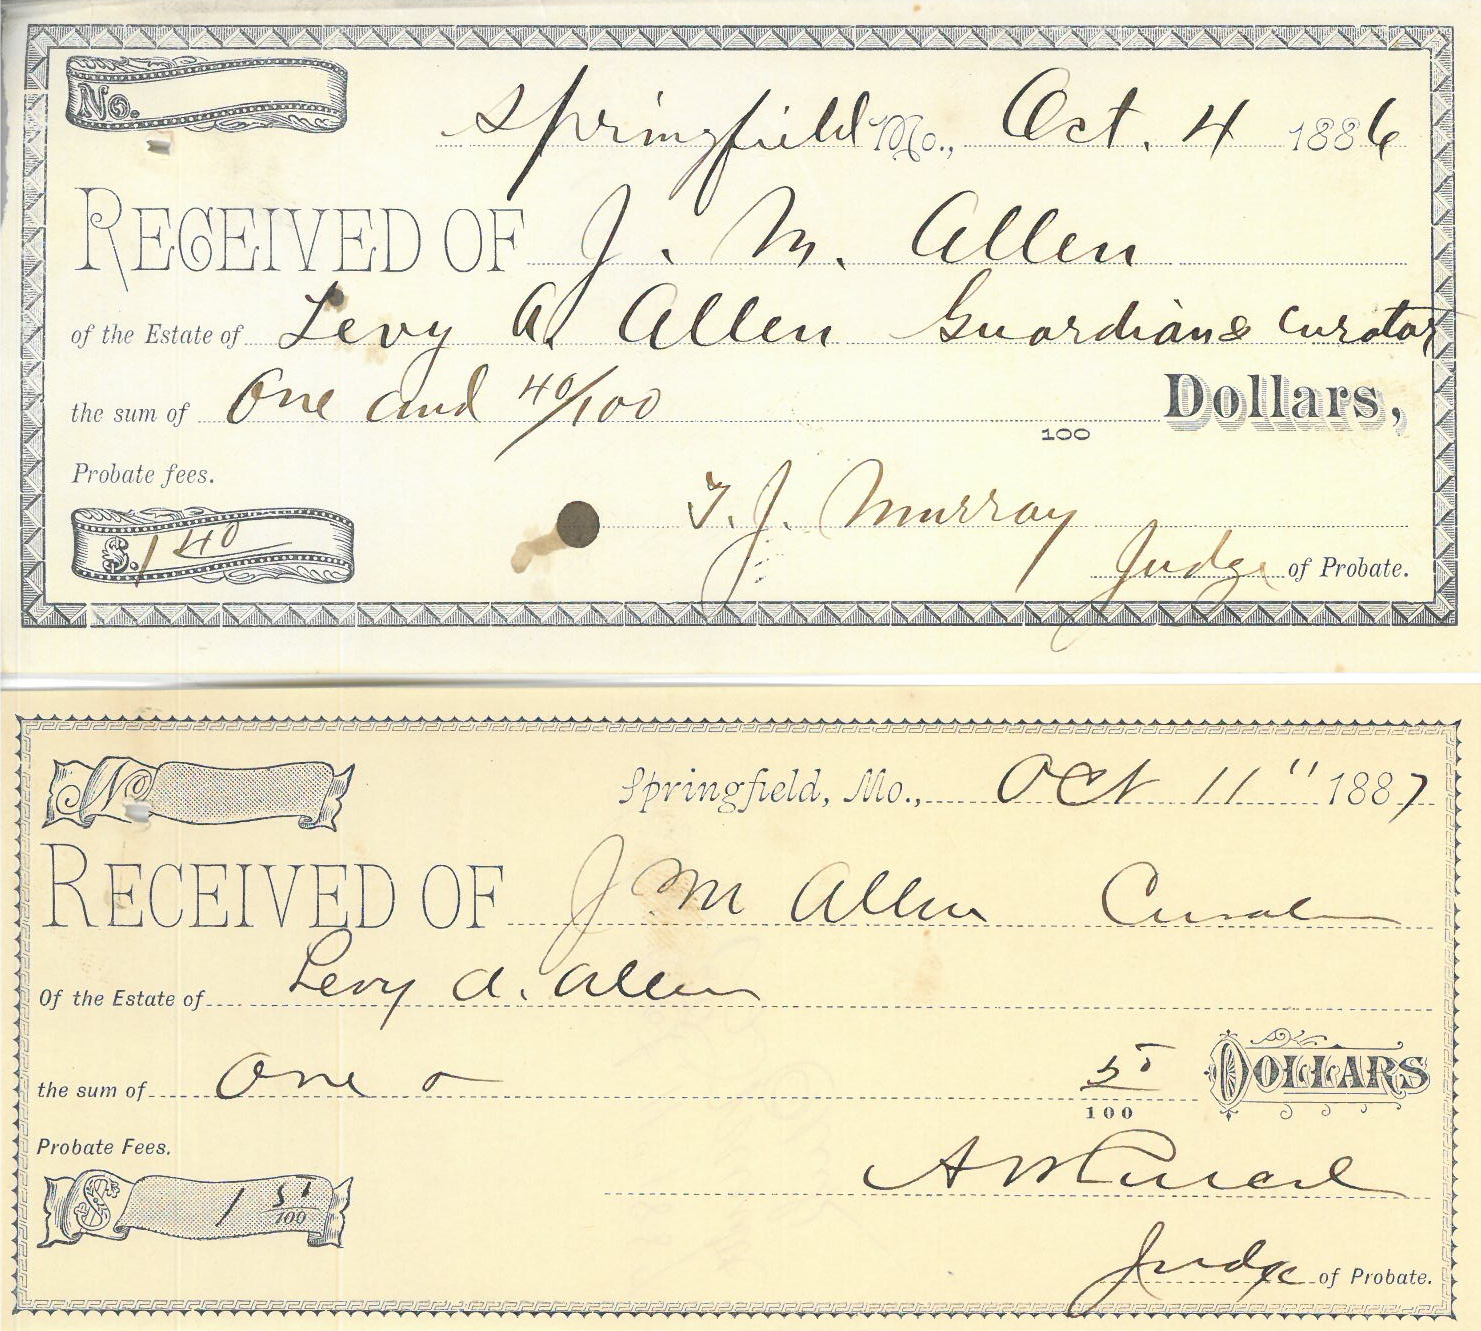 No.
Springfield Mo., Oct. 4 1886
RECEIVED OF J. M. Allen
of the Estate of Levy A. Allen Guardian & Curator
the sum of One and 40/100 Dollars,
100
Probate fees.
$. 1 40
T. J. Murray
Judge of Probate.
No
Springfield, Mo., Oct 11" 1887
RECEIVED OF J M Allen Curator
Of the Estate of Levy A. Allen
the sum of One & 5 DOLLARS
100
Probate Fees.
$ 1 5/100
A W
Judge of Probate.